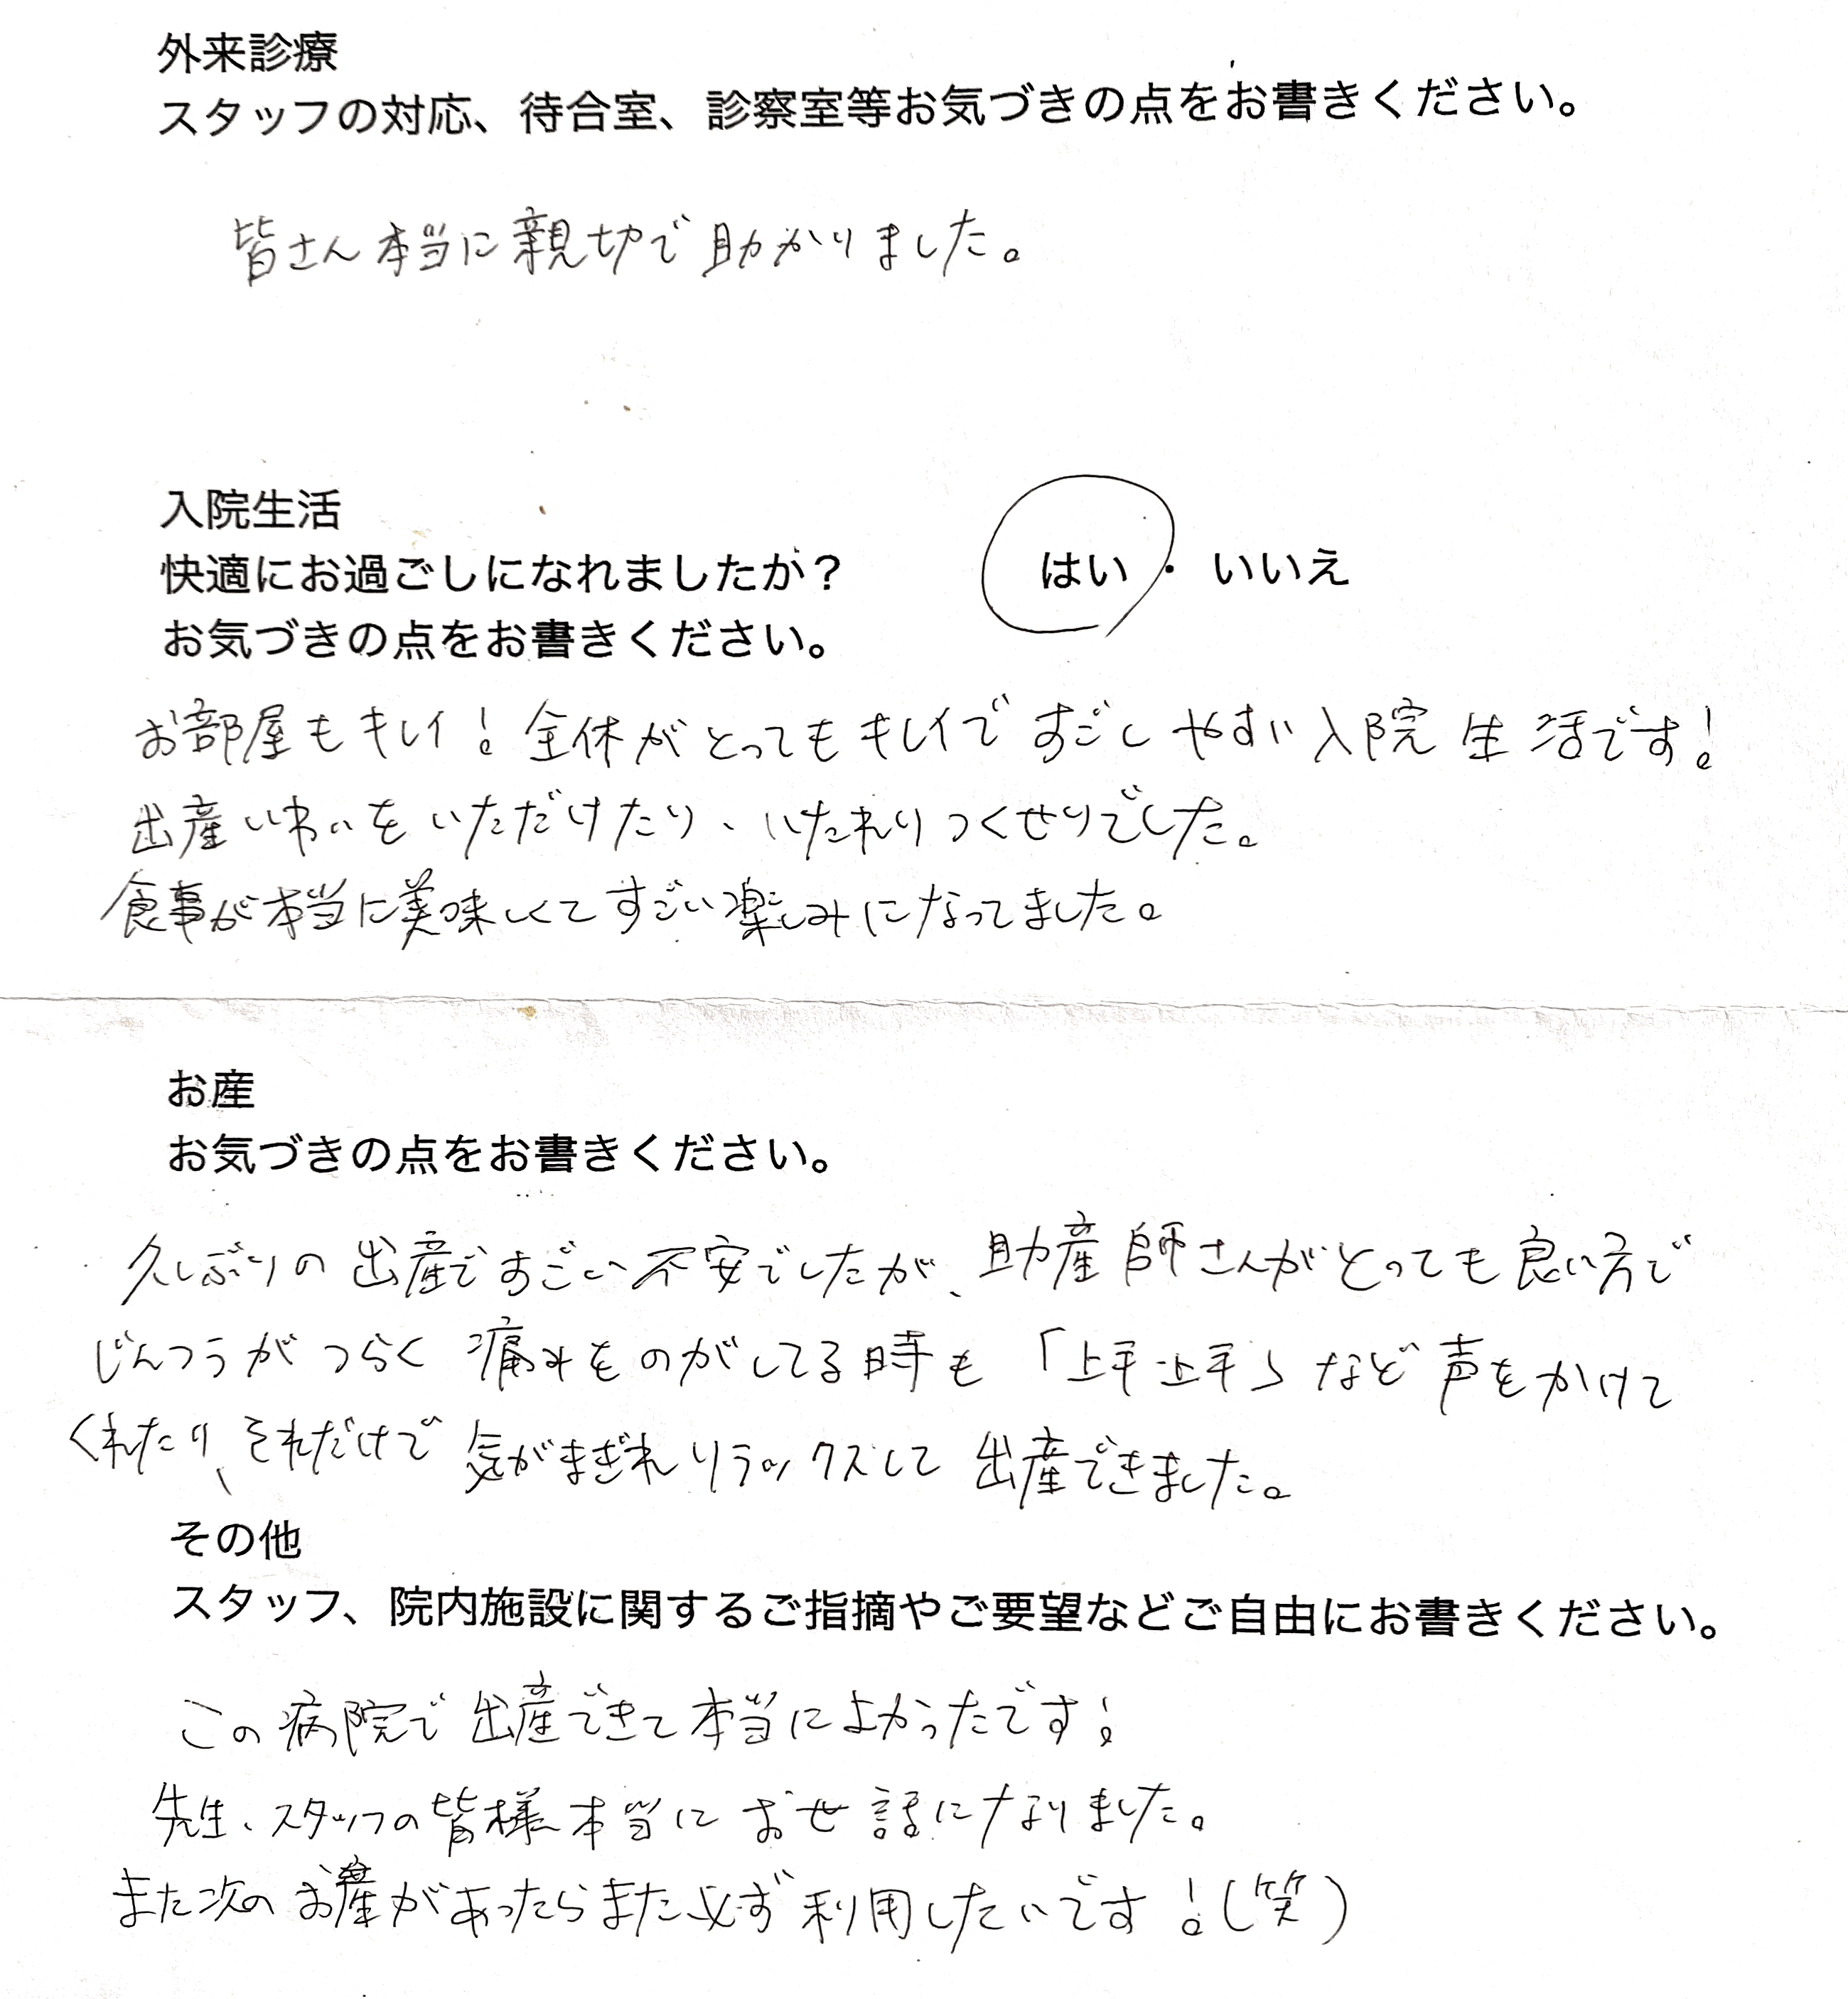 外来診療
スタッフの対応、待合室、診察室等お気づきの点をお書きください。
皆さん本当に親切で助かりました。
入院生活
快適にお過ごしになれましたか？ はい・いいえ
お気づきの点をお書きください。
お部屋もキレイ！全体がとってもキレイですごしやすい入院生活です！
出産いわいをいただけたり、いたれりつくせりでした。
食事が本当に美味しくてすごい楽しみになってました。
お産
お気づきの点をお書きください。
久しぶりの出産ですごい不安でしたが、助産師さんがとっても良い方で
じんつうがつらく痛みをのがしてる時も「上手上手」など声をかけて
くれたり、それだけで気がまぎれリラックスして出産できました。
その他
スタッフ、院内施設に関するご指摘やご要望などご自由にお書きください。
この病院で出産できて本当によかったです！
先生、スタッフの皆様本当にお世話になりました。
また次のお産があったらまた必ず利用したいです！(笑)